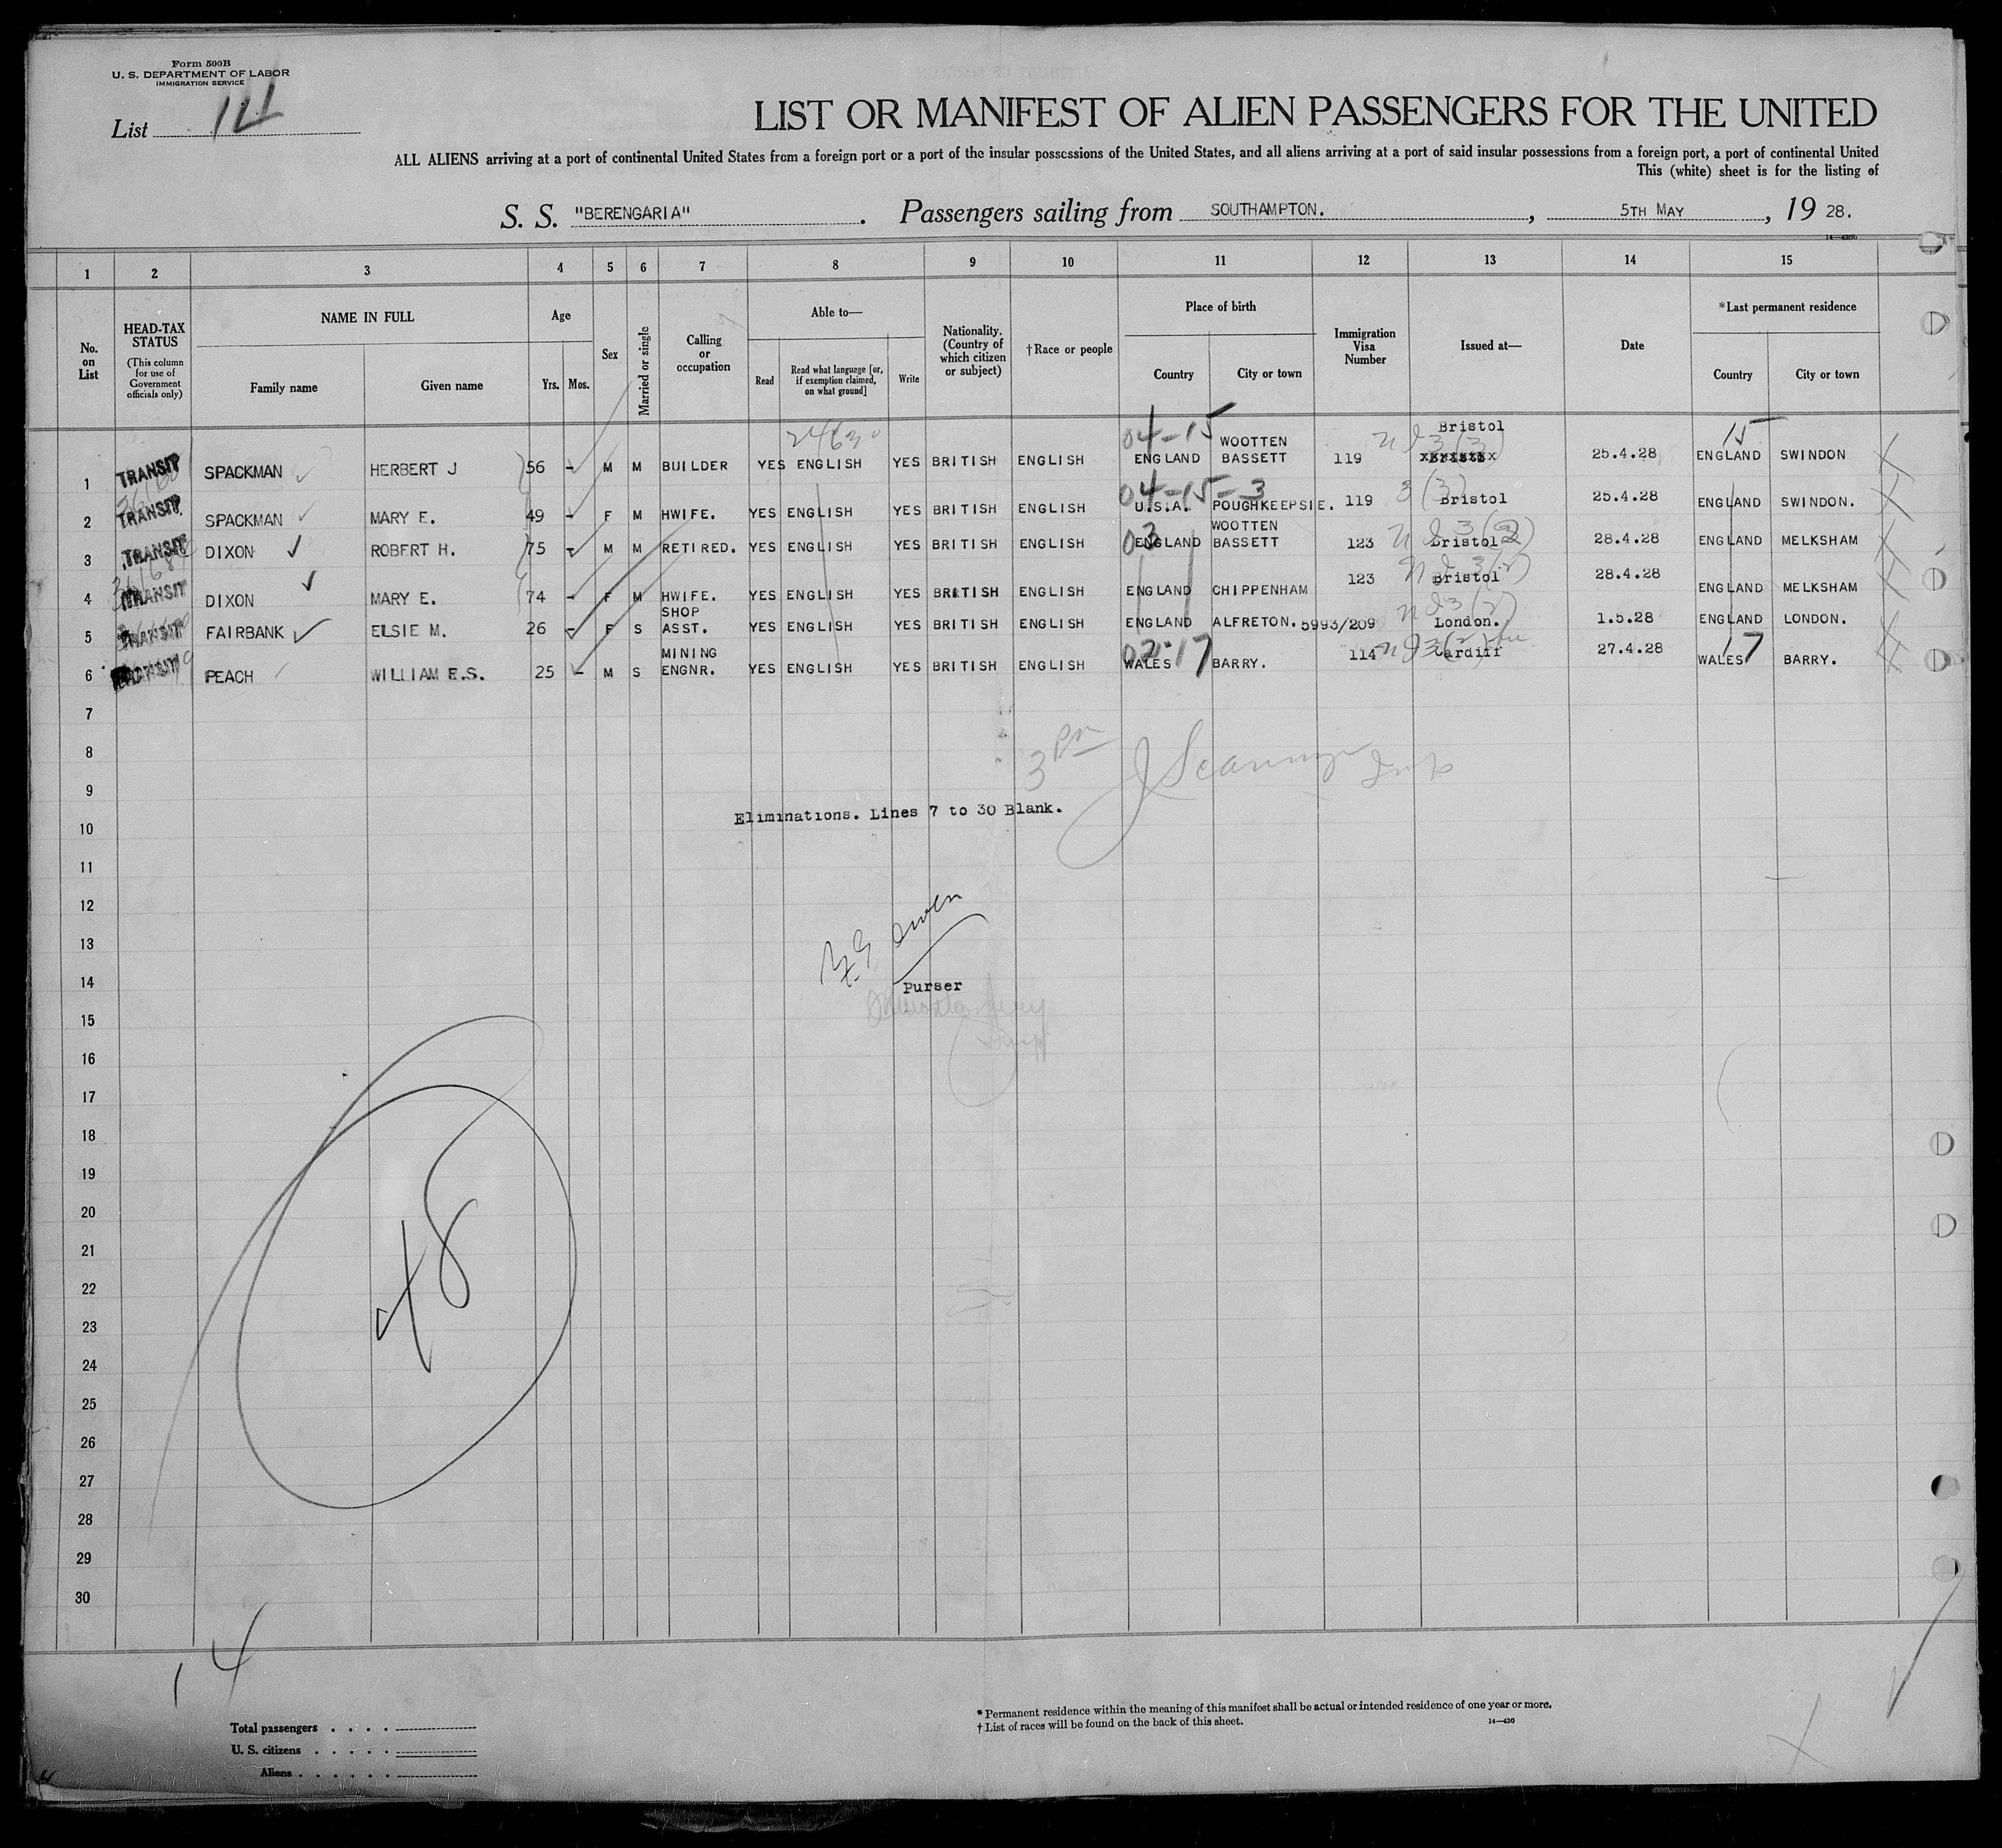 Form 500B
U. S. DEPARTMENT OF LABOR
IMMIGRATION SERVICE
List
LIST OR MANIFEST OF ALIEN PASSENGERS FOR THE UNITED
ALL ALIENS arriving at a port of continental United States from a foreign port or a port of the insular possessions of the United States, and all aliens arriving at a port of said insular possessions from a foreign port, a port of continental United
This (white) sheet is for the listing of
S. S. "BERENGARIA". Passengers sailing from SOUTHAMPTON., 5TH MAY, 19 28.
1 2 3 4 5 6 7 8 9 10 11 12 13 14 15
No. on List
HEAD-TAX STATUS (This column for use of Government officials only)
NAME IN FULL
Family name Given name
Age
Yrs. Mos.
Sex
Married or single
Calling or occupation
Able to—
Read Read what language [or, if exemption claimed, on what ground] Write
Nationality. (Country of which citizen or subject)
†Race or people
Place of birth
Country City or town
Immigration Visa Number
Issued at—
Date
*Last permanent residence
Country City or town
1 TRANSIT SPACKMAN HERBERT J 56 - M M BUILDER YES ENGLISH YES BRITISH ENGLISH ENGLAND WOOTTEN BASSETT 119 Bristol 25.4.28 ENGLAND SWINDON
2 TRANSIT SPACKMAN MARY E. 49 - F M HWIFE. YES ENGLISH YES BRITISH ENGLISH U.S.A. POUGHKEEPSIE. 119 Bristol 25.4.28 ENGLAND SWINDON.
3 TRANSIT DIXON ROBERT H. 75 - M M RETIRED. YES ENGLISH YES BRITISH ENGLISH ENGLAND WOOTTEN BASSETT 123 Bristol 28.4.28 ENGLAND MELKSHAM
4 TRANSIT DIXON MARY E. 74 - F M HWIFE. YES ENGLISH YES BRITISH ENGLISH ENGLAND CHIPPENHAM 123 Bristol 28.4.28 ENGLAND MELKSHAM
5 TRANSIT FAIRBANK ELSIE M. 26 - F S SHOP ASST. YES ENGLISH YES BRITISH ENGLISH ENGLAND ALFRETON. 5993/209 London. 1.5.28 ENGLAND LONDON.
6 TRANSIT PEACH WILLIAM E.S. 25 - M S MINING ENGNR. YES ENGLISH YES BRITISH ENGLISH WALES BARRY. 114 Cardiff 27.4.28 WALES BARRY.
7
8
3 Pm
9
Eliminations. Lines 7 to 30 Blank.
10
11
12
13
Owen
14
Purser
15
16
17
18
19
20
21
22
48
23
24
25
26
27
28
29
30
14
Total passengers
U. S. citizens
Aliens
* Permanent residence within the meaning of this manifest shall be actual or intended residence of one year or more.
† List of races will be found on the back of this sheet.
14—430